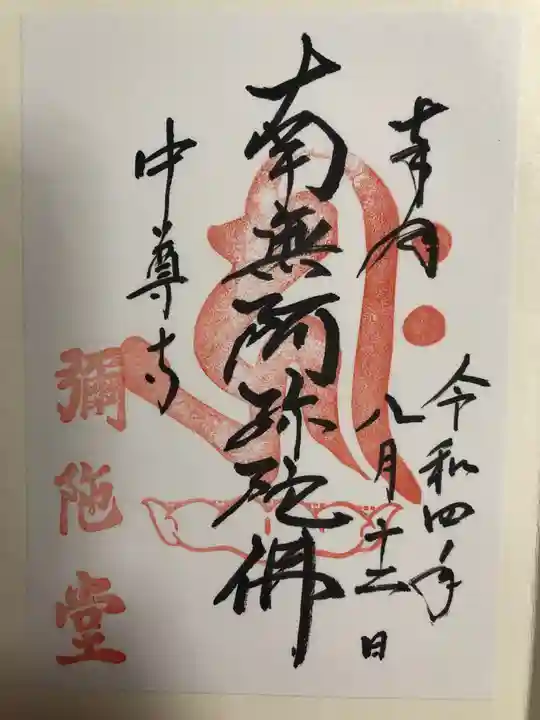 奉拝
令和四年
八月十三日
南無阿弥陀佛
中尊寺
彌陀堂